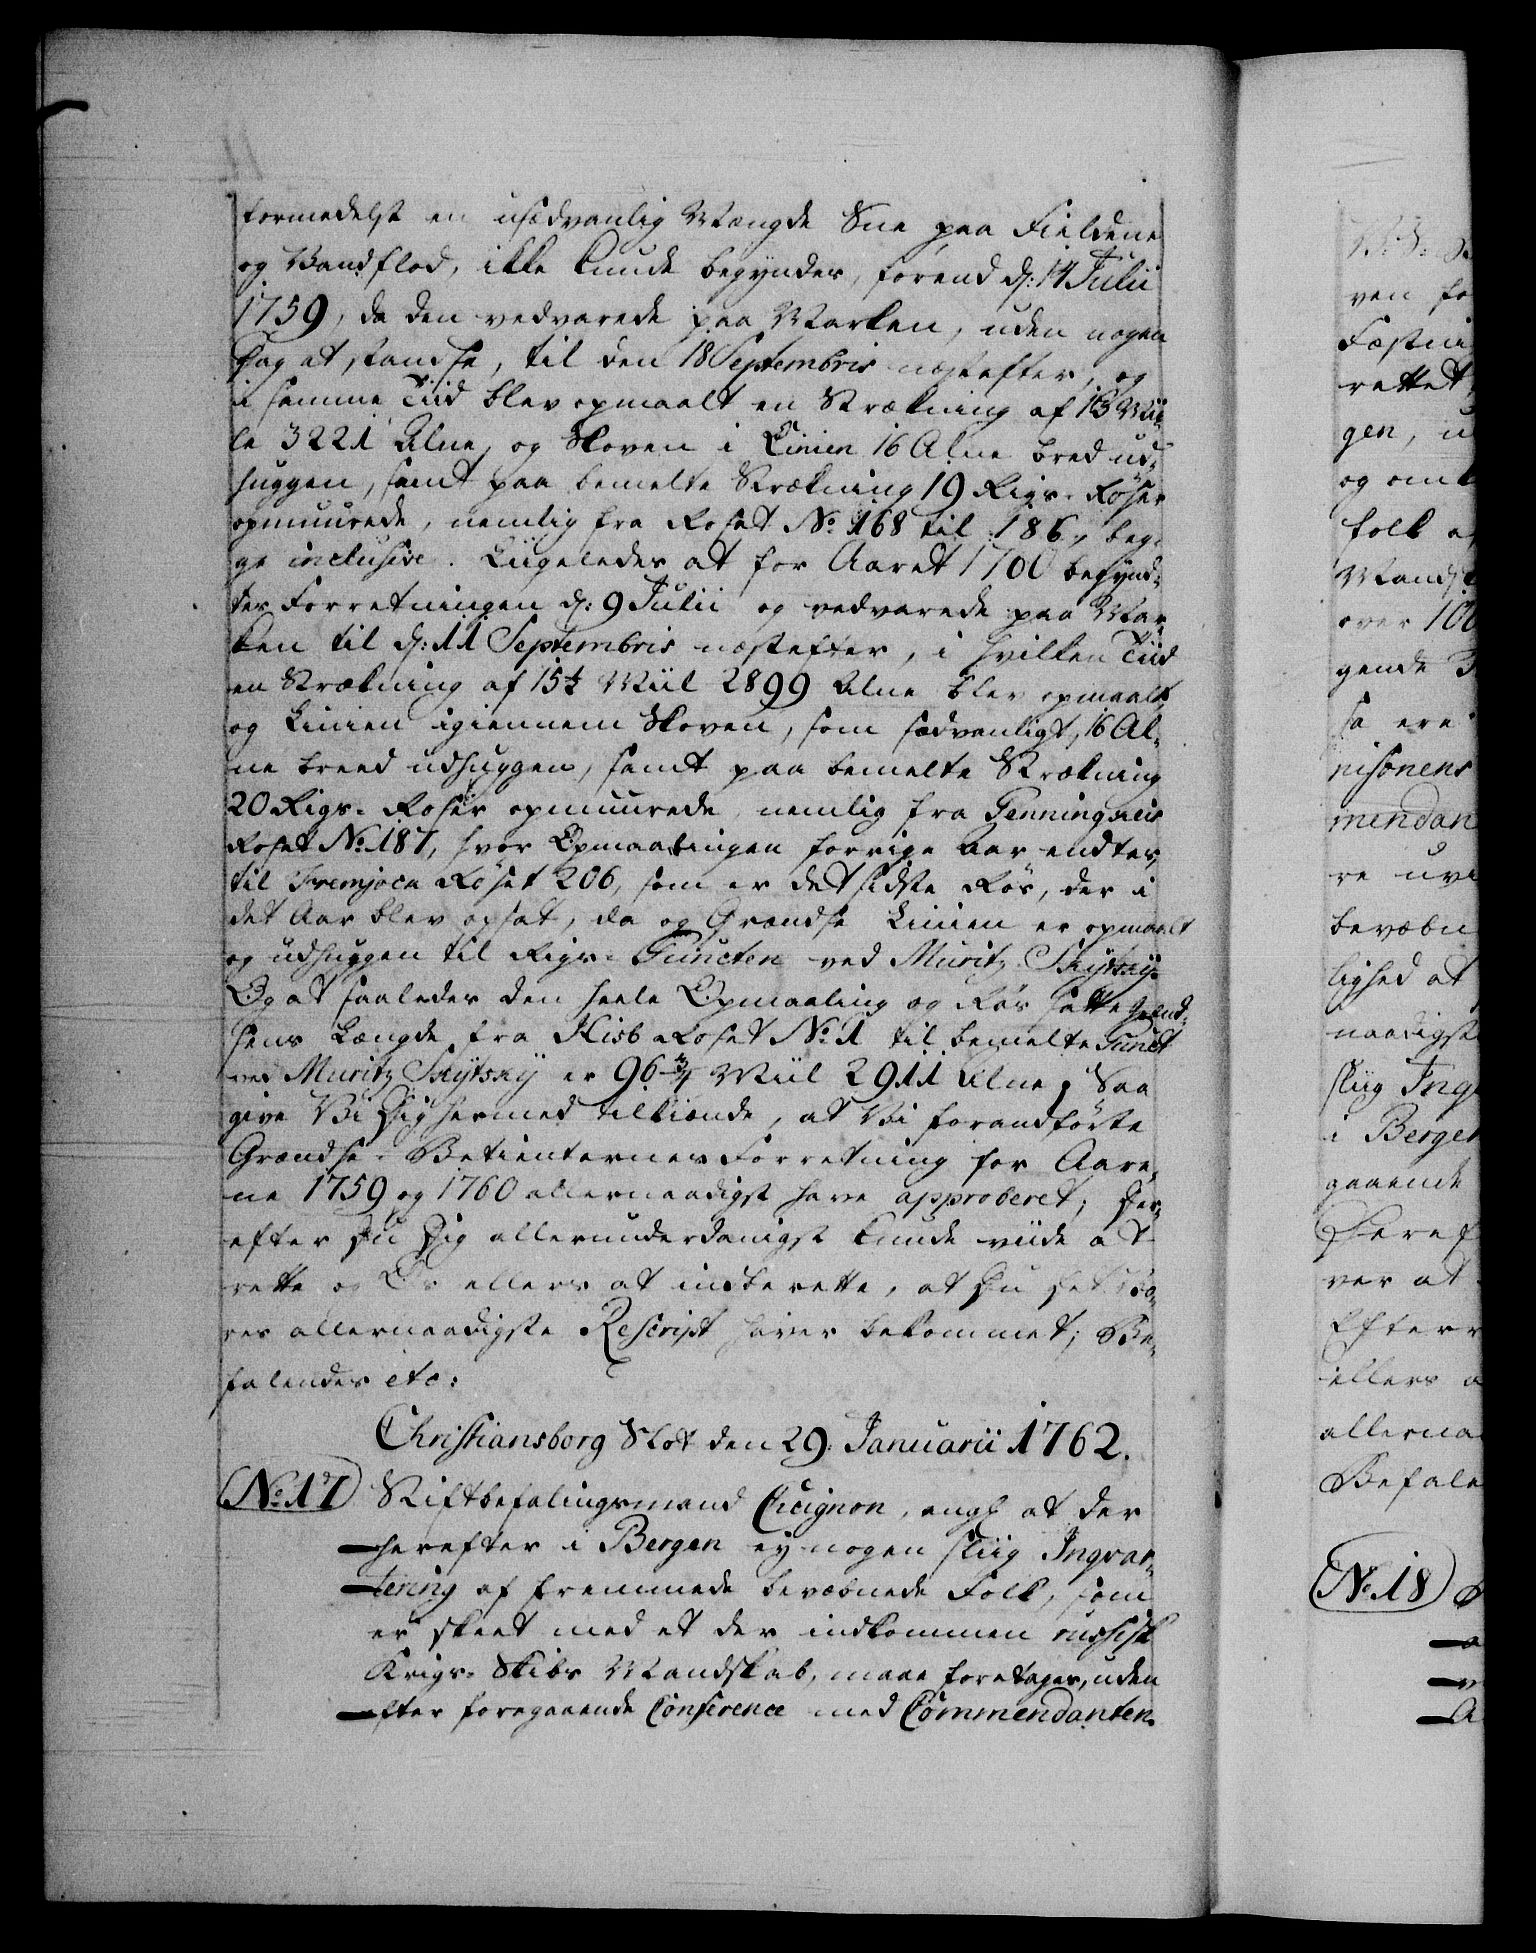 formedelst en usædvanlig Mængde Sne paa Fieldene
og Vandflod, ikke kunde begyndes, forend d: 14 Julii
1759, da den vedvarede paa Marken, uden nogen
Dag at standse, til den 18 Septembris næstefter, og
i samme Tiid blev opmaalt en Strækning af 13 Mii-
le 3221 Alne, og Skoven i Linien 16 Alne bred ud-
huggen, samt paa bemelte Strækning 19 Rigs-Röser
opmuurede, nemlig fra Roset No. 168 til 186, beg-
ge inclusive. Liigeledes at for Aaret 1760 begynd-
tes Forretningen d: 9 Julii og vedvarede paa Mar-
ken til d: 11 Septembris næstefter, i hvilken Tiid
en Strækning af 15½ Miil 2899 Alne blev opmaalt,
og Linien igiennem Skoven, som sædvanligt, 16 Al-
ne breed udhuggen, samt paa bemelte Strækning
20 Rigs-Roser opmuurede nemlig fra
Roset No. 187, hvor Opmaalingen forrige Aar endtes,
til Fremjoca Röset 206, som er det sidste Rös, der i
det Aar blev opsat, da og Grændse Linien er opmaalt
og udhuggen til Rigs-Puncten ved Muritz Skÿtskÿ.
Og at saaledes den heele Opmaaling og Rös satte Grænd-
sens Længde fra Hisö Roset No. 1 til bemelte Punct
ved Muritz Skÿtskÿ er 96¾ Miil 2911 Alne; Saa
give Vi Dig hermed tilkiende, at Vi forandförte
Grændse-Betienternes Forretning for Aare-
ne 1759 og 1760 allernaadigst have approberet; Der-
efter Du Dig allerunderdanigst kunde viide at
rette og Os ellers at indberette, at Du det Vo-
res allernaadigste Rescript haver bekommet; Be-
falendes etc:
Christiansborg Slot den 29. Januarii 1762.
No. 17 Stiftbefalingsmand Cicignon, angl at der
herefter i Bergen ey nogen sliig Inqvar-
tering af fremmede bevæbnede Folk, som
er skeet med et der indkommen russisk
Krigs-Skibs Mandskab, maae foretages, uden
efter foregaaende Conference med Commendanten.
ven fo
Fæstni
rettet
gen, u
og om
folk a
Mandsk
over 100
gende
sa ere
nisonens
mendan
re uvi
bevæbn
lighed at
naadigst
sliig Inq
i Bergen
gaaende
Deref
ver at
Efterr
ellers a
allerna
Befale
No. 18